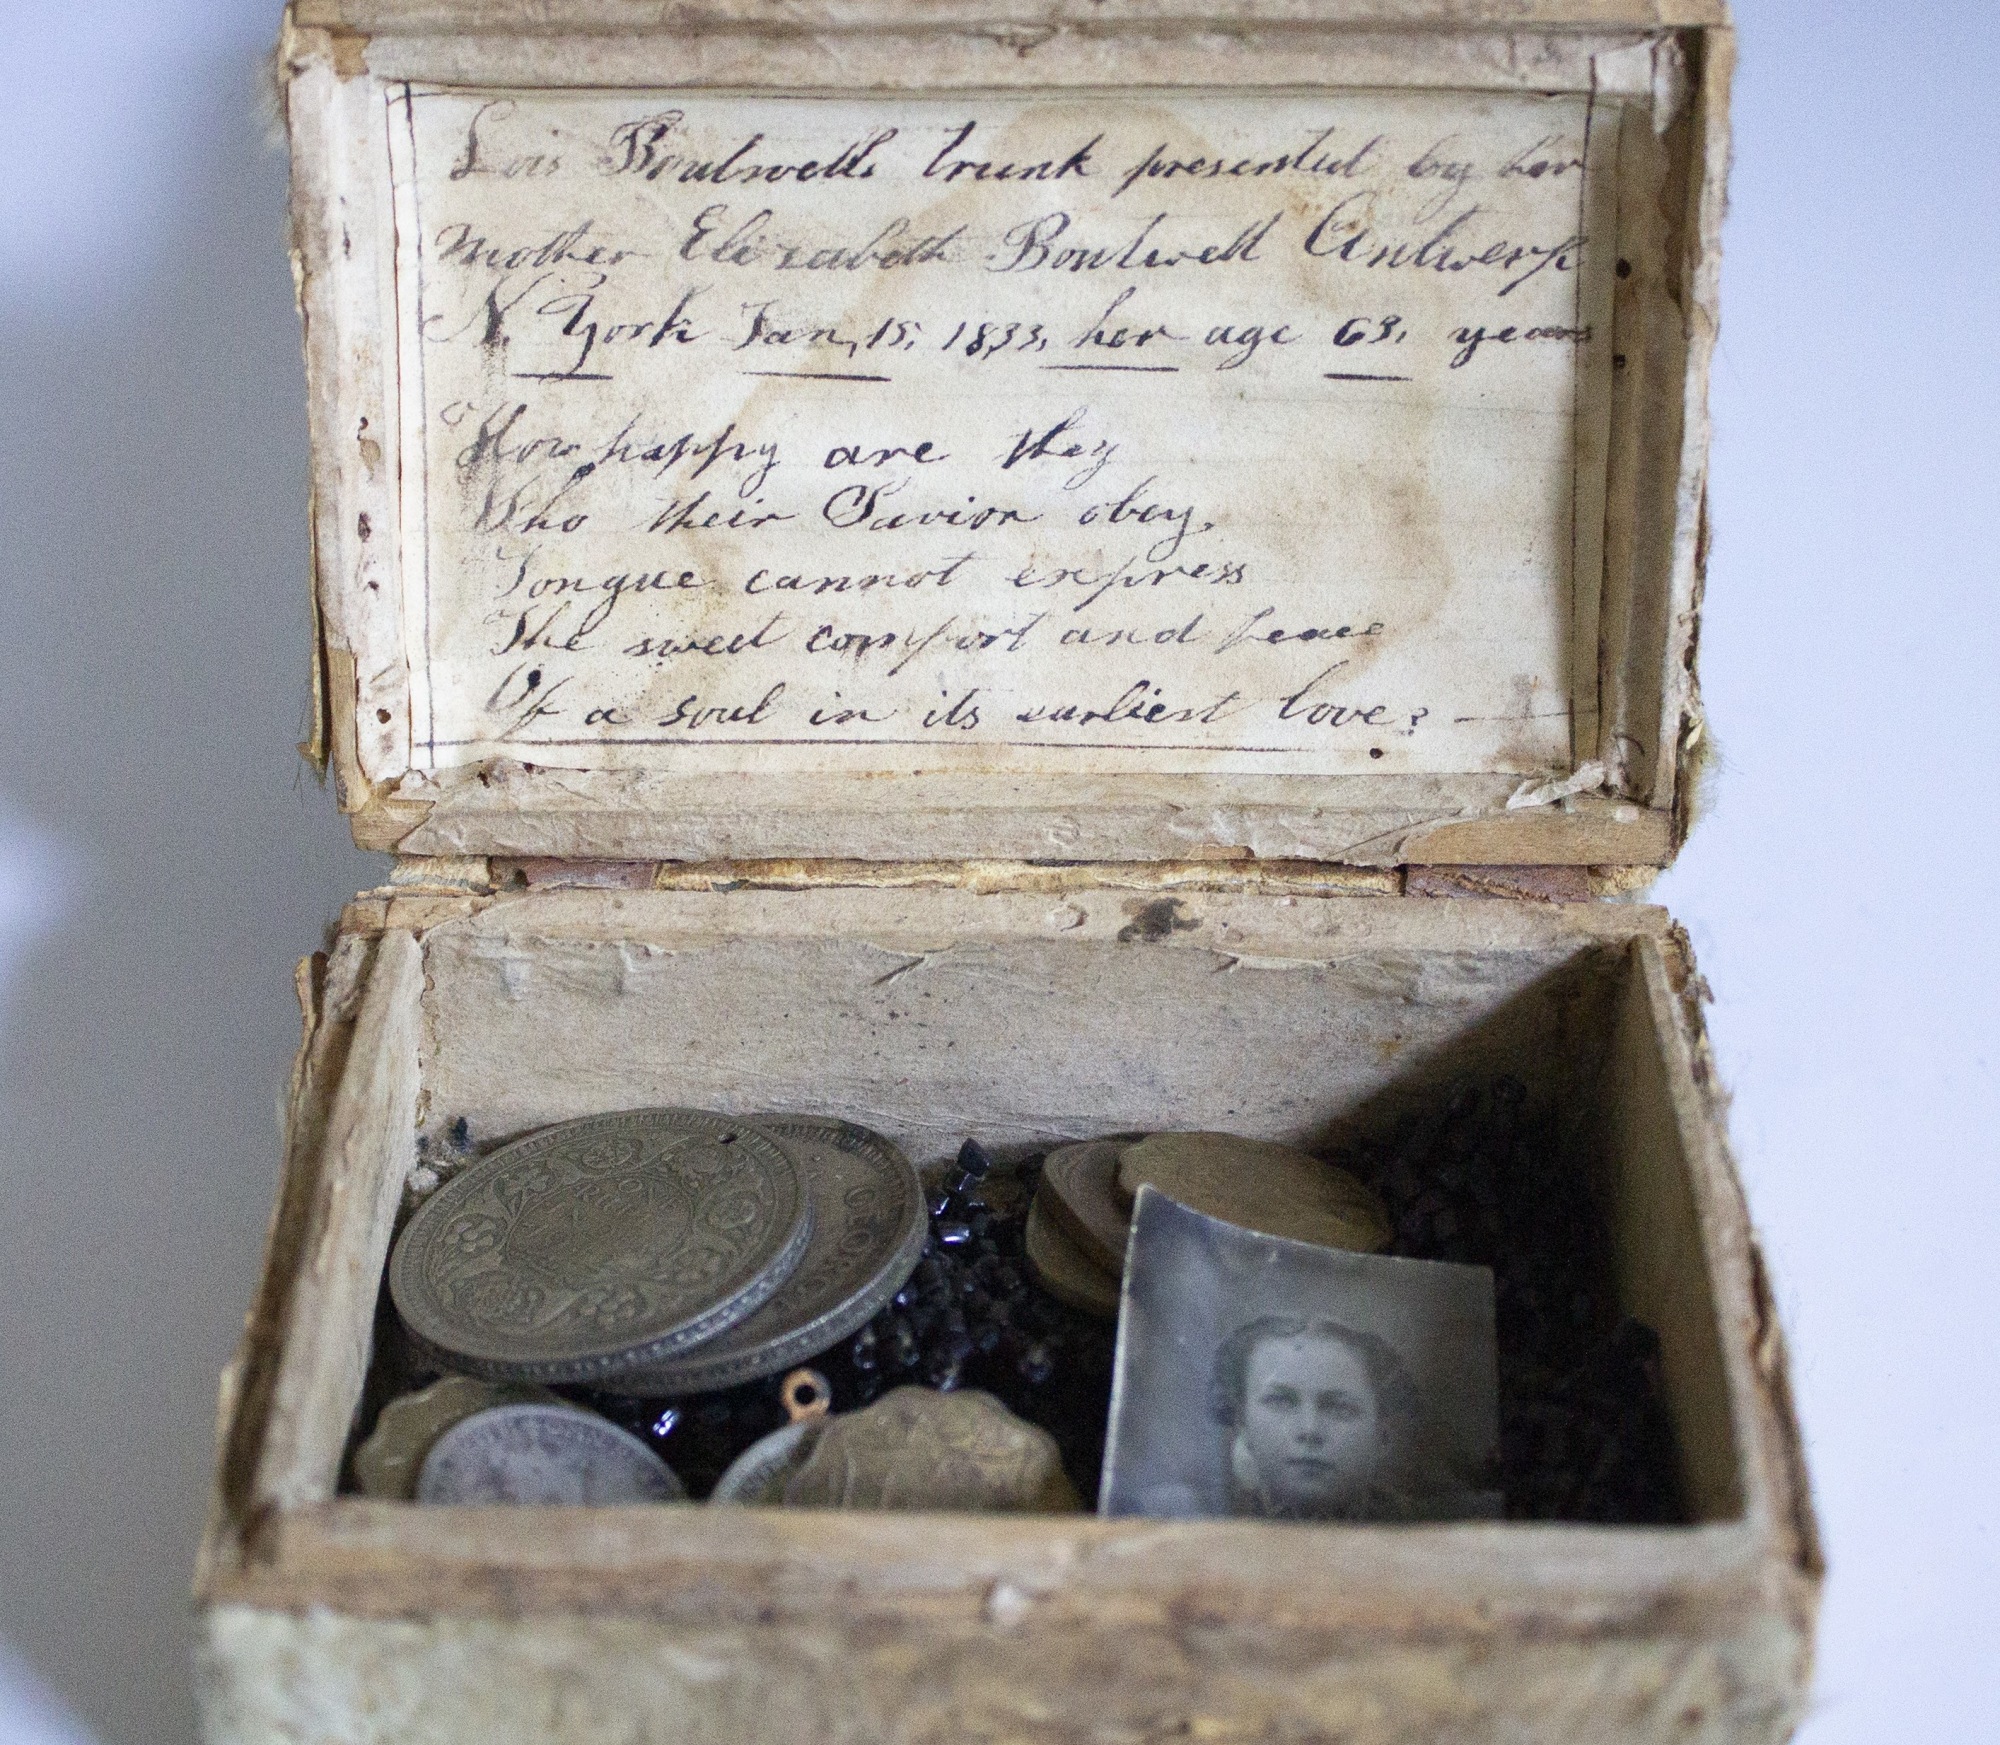 Lois Boutwells trunk presented by her
mother Elizabeth Boutwell Antwerp
N. York Jan, 15, 1833, her age 63, years
How happy are they
Who their Savior obey,
Tongue cannot express
The sweet comfort and peace
Of a soul in its earliest love?
ONE
RUPEE
GEORGE